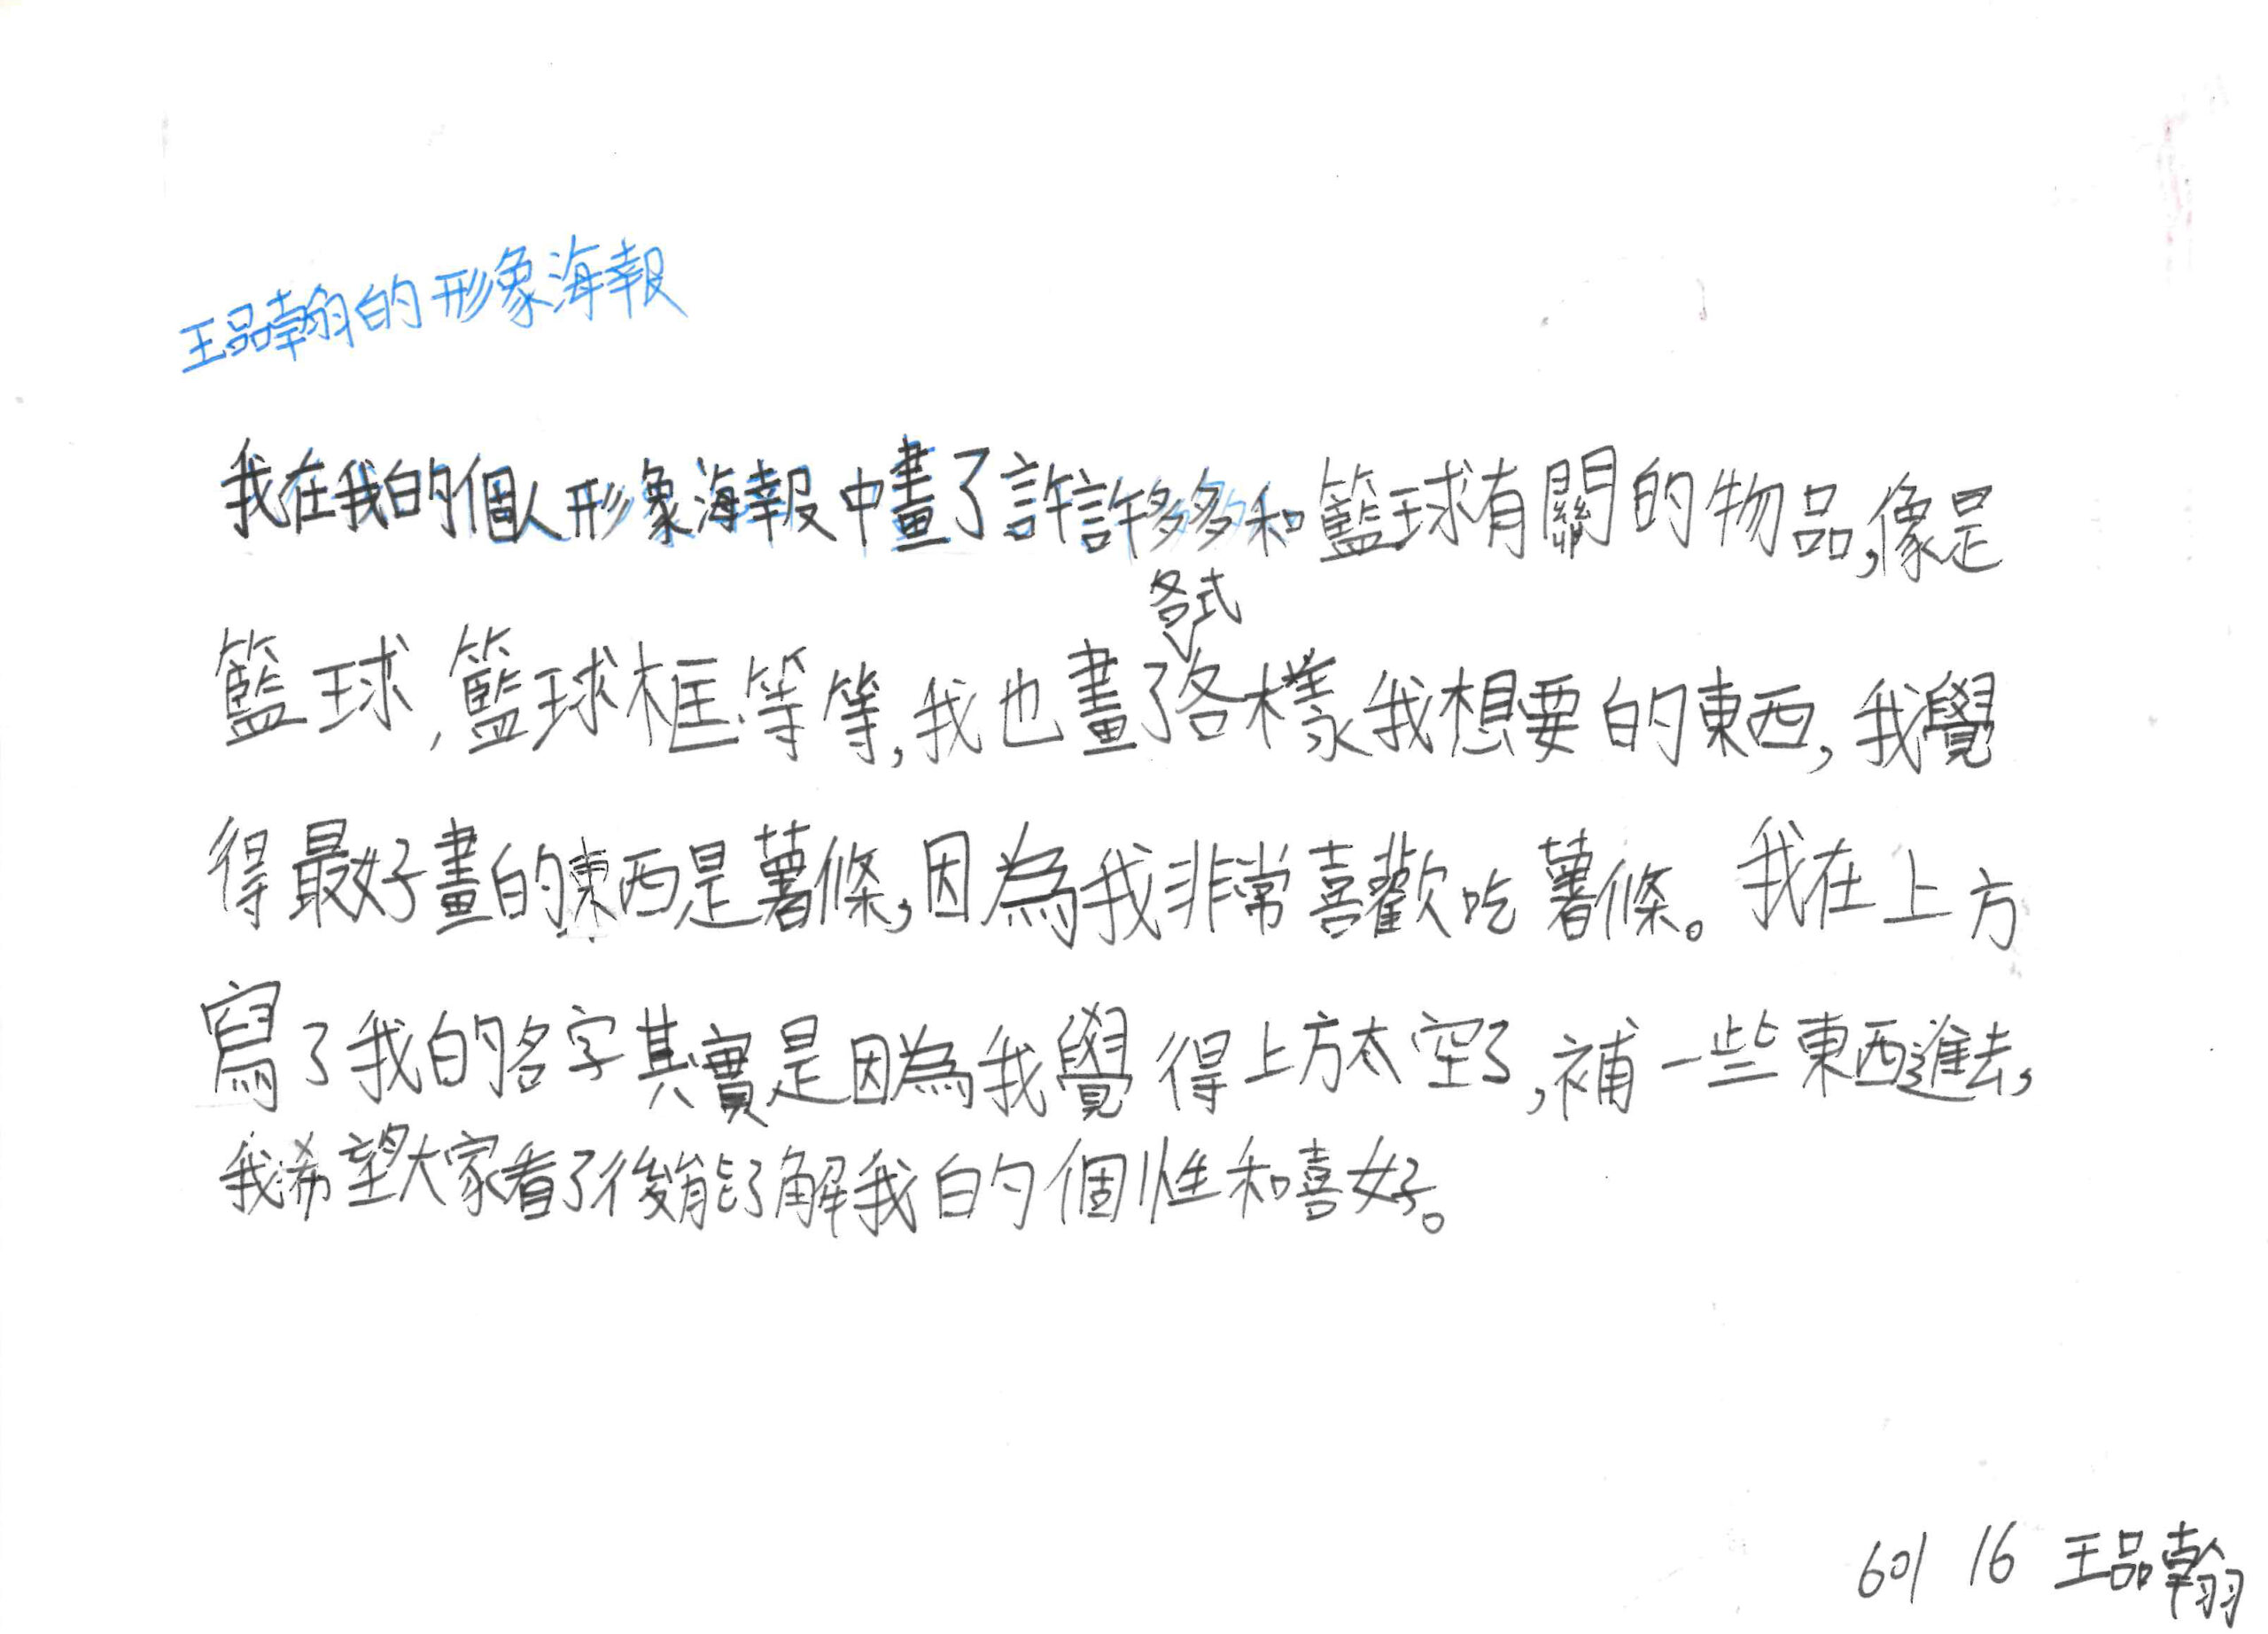 王品翰的形象海報
我在我的個人形象海報中畫了許許多多和籃球有關的物品,像是
籃球,籃球框等等,我也畫了各式各樣我想要的東西,我覺
得最好畫的東西是薯條,因為我非常喜歡吃薯條。我在上方
寫了我的名字其實是因為我覺得上方太空了,補一些東西進去,
我希望大家看了後能了解我的個性和喜好。
601 16 王品翰